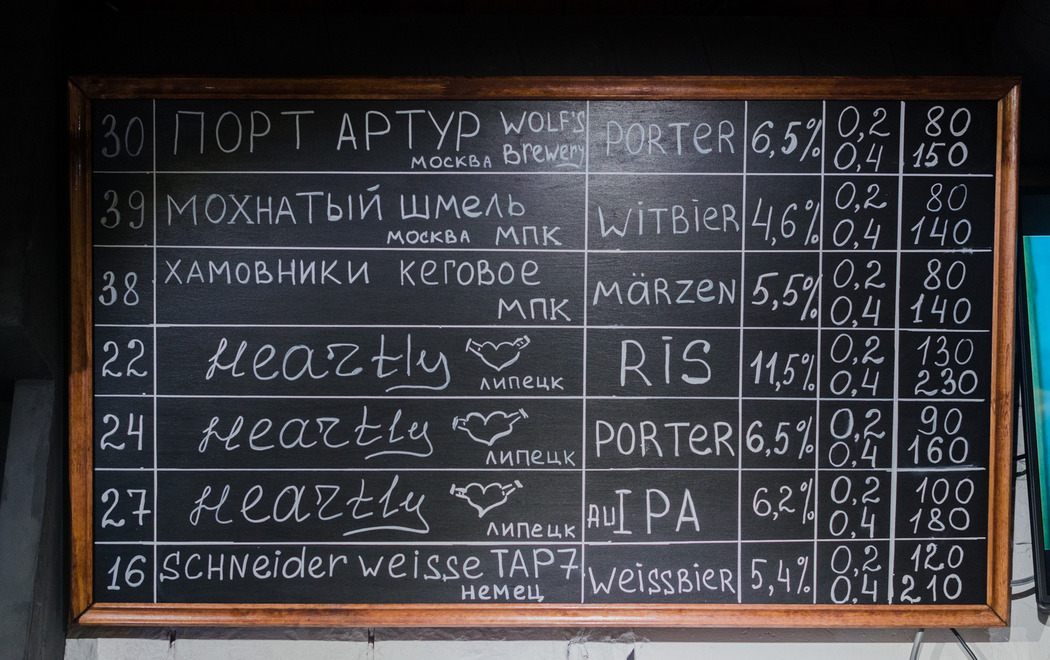 30 ПОРТ АРТУР WOLF'S PORTER 6,5% 0,2 80
МОСКВА Brewery 0,4 150
39 МОХНАТЫЙ ШМЕЛЬ WITBIER 4,6% 0,2 80
МОСКВА МПК 0,4 140
38 ХАМОВНИКИ КЕГОВОЕ MÄRZEN 5,5% 0,2 80
МПК 0,4 140
22 Heartly RIS 11,5% 0,2 130
ЛИПЕЦК 0,4 230
24 Heartly PORTER 6,5% 0,2 90
ЛИПЕЦК 0,4 160
27 Heartly AU IPA 6,2% 0,2 100
ЛИПЕЦК 0,4 180
16 SCHNeider weisse TAP7 WEISSBIER 5,4% 0,2 120
немец 0,4 210